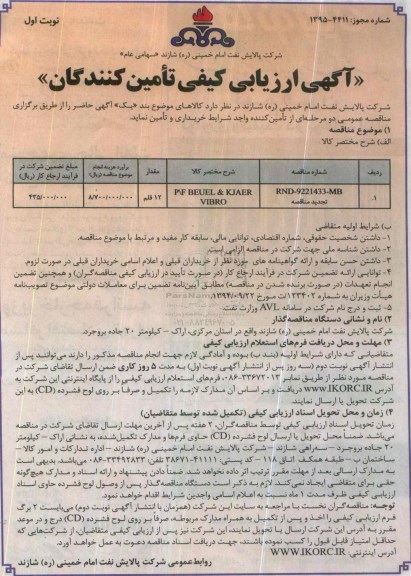 شماره مجوز: ۱۳۹۵-۴۴۱۱
نوبت اول
شرکت پالایش نفت امام خمینی (ره) شازند «سهامی عام»
«آگهی ارزیابی کیفی تأمین کنندگان»
شرکت پالایش نفت امام خمینی (ره) شازند در نظر دارد کالاهای موضوع بند «یک» آگهی حاضر را از طریق برگزاری
مناقصه عمومی دو مرحله‌ای از تأمین‌کننده واجد شرایط خریداری و تأمین نماید.
۱) موضوع مناقصه
الف) شرح مختصر کالا
ردیف شماره مناقصه شرح مختصر کالا مقدار برآورد هزینه انجام موضوع مناقصه (ریال) مبلغ تضمین شرکت در فرآیند ارجاع کار (ریال)
۱. RND-9221433-MB تجدید مناقصه P\F BEUEL & KJAER VIBRO ۱۲ قلم ۸/۷۰۰/۰۰۰/۰۰۰ ۴۳۵/۰۰۰/۰۰۰
ب) شرایط اولیه متقاضی
۱- داشتن شخصیت حقوقی، شماره اقتصادی، توانایی مالی، سابقه کار مفید و مرتبط با موضوع مناقصه.
۲- داشتن شناسه ملی جهت شرکت در مناقصه الزامی است.
۳- داشتن حسن سابقه و ارائه گواهینامه های مورد نظر از خریداران قبلی و اعلام اسامی خریداران قبلی در صورت لزوم.
۴- توانایی ارائه تضمین شرکت در فرآیند ارجاع کار (در صورت تأیید در ارزیابی کیفی مناقصه‌گران) و همچنین تضمین
انجام تعهدات (در صورت برنده شدن در مناقصه) مطابق آیین‌نامه تضمین برای معاملات دولتی موضوع تصویبنامه
هیأت وزیران به شماره ۱۲۳۴۰۲/ت مورخ ۱۳۹۴/۰۹/۲۲.
۵- ثبت و درج نام شرکت در سامانه AVL وزارت نفت.
۲) نام و نشانی دستگاه مناقصه‌گذار
شرکت پالایش نفت امام خمینی (ره) شازند واقع در استان مرکزی، اراک - کیلومتر ۲۰ جاده بروجرد.
۳) مهلت و محل دریافت فرم‌های استعلام ارزیابی کیفی
متقاضیانی که دارای شرایط اولیه (بند ب) بوده و آمادگی لازم جهت انجام مناقصه مذکور را دارند می‌توانند پس از
انتشار آگهی نوبت دوم (سه روز پس از انتشار آگهی نوبت اول) به مدت ۵ روز کاری ضمن ارسال تقاضای شرکت در
مناقصه مورد نظر از طریق نمابر ۳۳۶۷۲۰۱۳-۰۸۶، فرم‌های استعلام ارزیابی کیفی را از پایگاه اینترنتی این شرکت به
آدرس WWW.IKORC.IR دریافت و بر اساس آن مدارک لازمه را تکمیل و صرفاً بر روی لوح فشرده (CD) به این
شرکت تحویل یا ارسال نمایند.
۴) زمان و محل تحویل اسناد ارزیابی کیفی (تکمیل شده توسط متقاضیان)
زمان تحویل اسناد ارزیابی کیفی توسط مناقصه‌گران، ۲ هفته پس از آخرین مهلت ارسال تقاضای شرکت در مناقصه
می‌باشد. ضمناً محل تحویل یا ارسال لوح فشرده (CD) حاوی فرم‌ها و مدارک تکمیل‌شده، به نشانی اراک - کیلومتر
۲۰ جاده بروجرد - سه‌راهی شازند - شرکت پالایش نفت امام خمینی (ره) شازند - اداره تدارکات و امور کالا -
می‌باشد. بدیهی است
به مدارک ارسالی بعد از مهلت مقرر ترتیب اثر داده نخواهد شد. ضمناً دادن پیشنهاد و ارائه اسناد و مدارک هیچ‌گونه
حقی برای متقاضی ایجاد نمی‌کند. لازم به ذکر است دستگاه مناقصه‌گذار پس از وصول لوح فشرده حاوی اسناد
ارزیابی کیفی ظرف مدت ۱ ماه نسبت به اعلام اسامی واجدین شرایط اقدام خواهد نمود.
توجه: مناقصه‌گران نخست با مراجعه به سایت این شرکت (همزمان با انتشار آگهی نوبت دوم) می‌بایست ۲ برگ
فرم ارزیابی کیفی را اخذ و پس از تکمیل به همراه مدارک مربوطه، صرفاً بر روی لوح فشرده (CD) درج و در موعد
مقرر به آدرس این شرکت ارسال یا تحویل نمایند. این شرکت نیز پس از ارزیابی کیفی متقاضیان، از شرکت‌هایی که
حداقل امتیاز قابل قبول را کسب نموده باشند، جهت دریافت اسناد مناقصه دعوت به عمل خواهد آورد.
آدرس اینترنتی: WWW.IKORC.IR
روابط عمومی شرکت پالایش نفت امام خمینی (ره) شازند